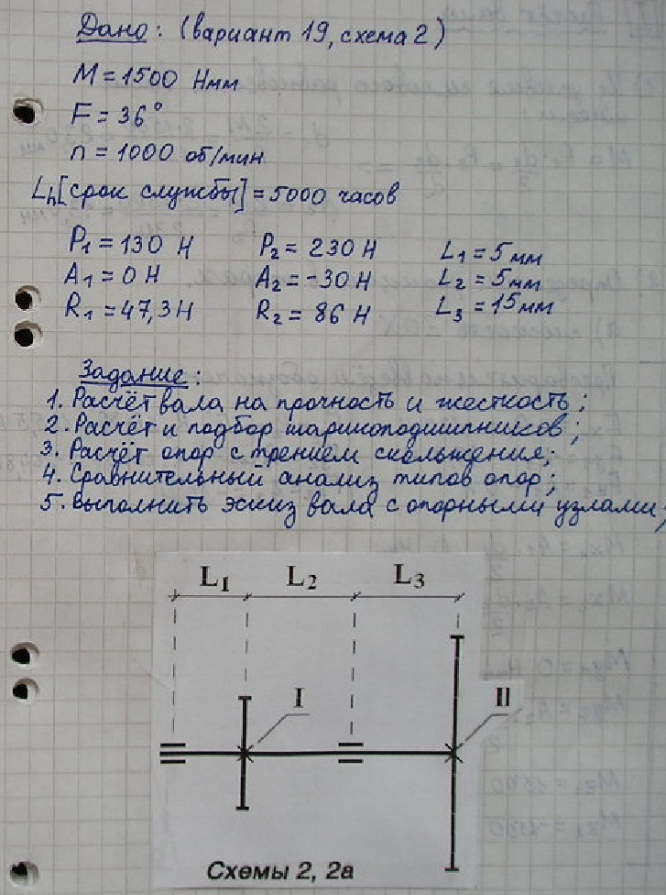 Дано: (вариант 19, схема 2)
M = 1500 Нмм
F = 36°
n = 1000 об/мин
Lh [срок службы] = 5000 часов
P1 = 130 Н P2 = 230 Н L1 = 5 мм
A1 = 0 Н A2 = -30 Н L2 = 5 мм
R1 = 47,3 Н R2 = 86 Н L3 = 15 мм
Задание:
1. Расчёт вала на прочность и жесткость;
2. Расчёт и подбор шарикоподшипников;
3. Расчёт опор с трением скольжения;
4. Сравнительный анализ типов опор;
5. Выполнить эскиз вала с опорными узлами;
L1 L2 L3
I II
Схемы 2, 2а